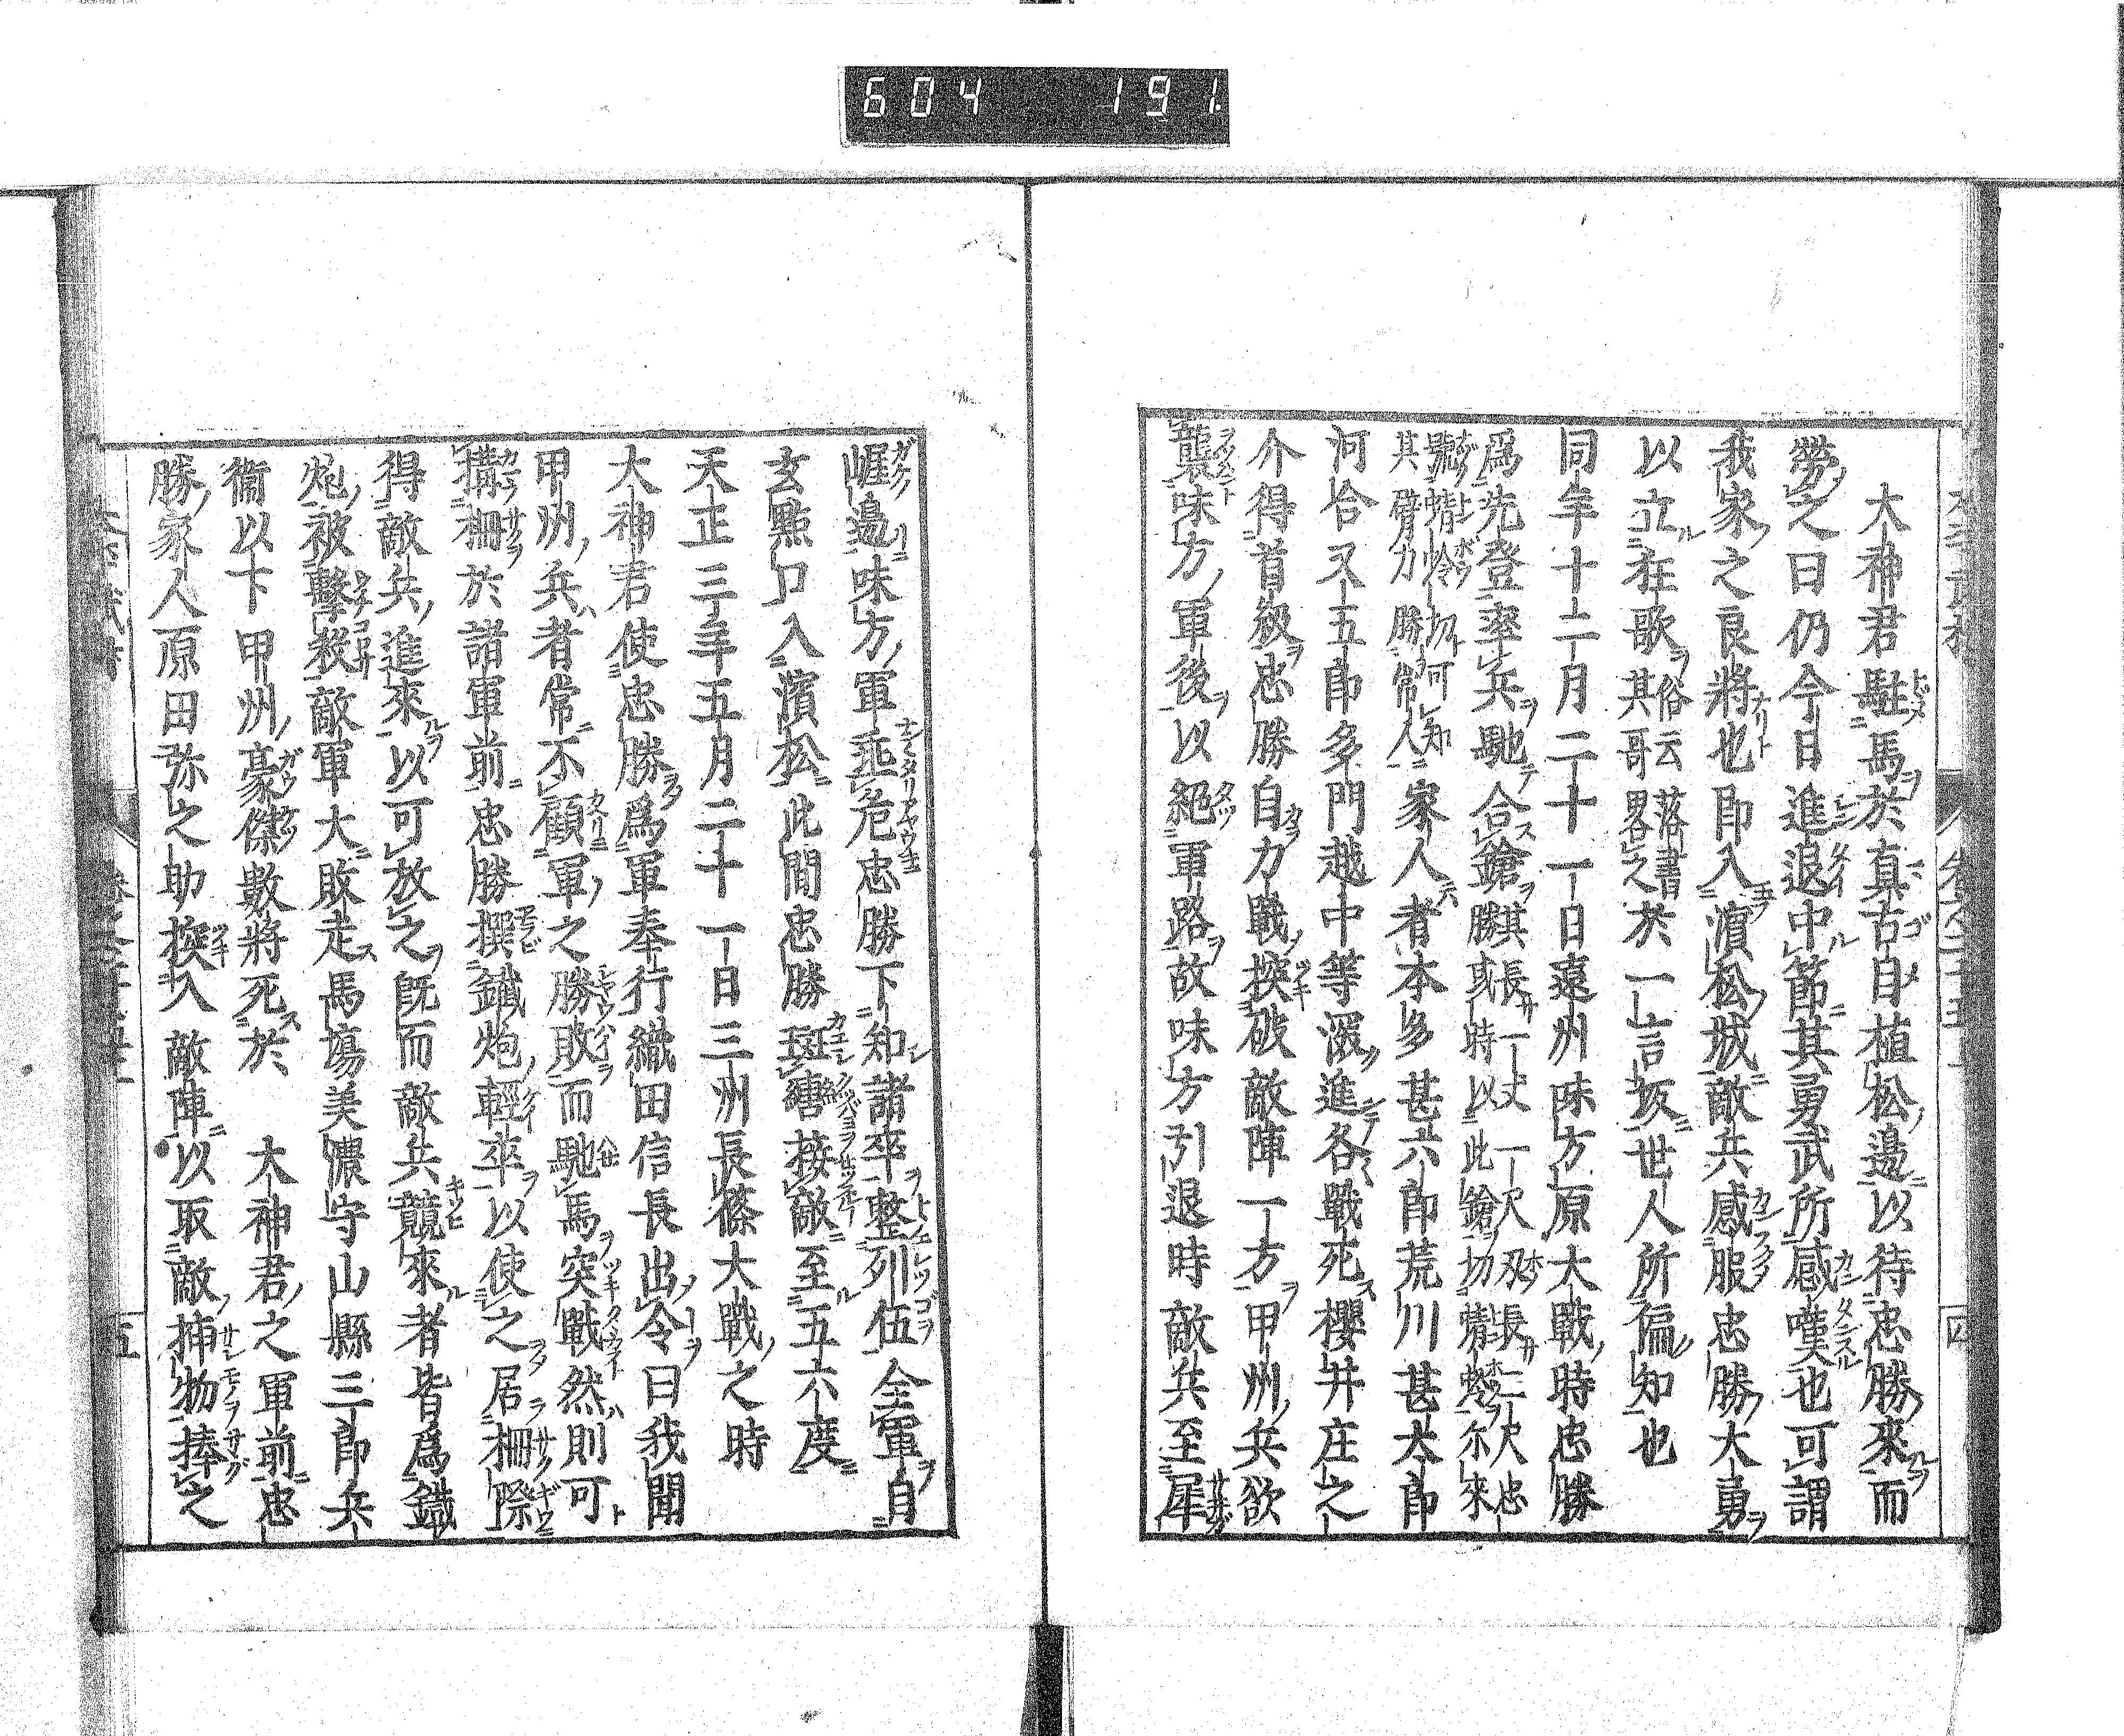 604 191
大神君駐馬於真古目植松邊以待忠勝來而
勞之曰仍今日進退中節其勇武所感嘆也可謂
我家之良將也即入濵松城敵兵感服忠勝大勇
以立狂歌俗云落書其哥畧之於一言坂世人所偏知也
同年十二月二十一日遠州味方原大戰時忠勝
爲先登率兵馳合鎗其長一丈一尺刃長二尺忠勝或時以此鎗切蜻蛉尓來
號蜻蛉切可知其臂力勝常人家人者本多甚六郎荒川甚太郎
河合又五郎多門越中等深進各戰死櫻井庄之
介得首級忠勝自力戰挨破敵陣一方甲州兵欲
襲味方軍後以絕軍路故味方引退時敵兵至犀
崕邊味方軍垂危忠勝下知諸卒整列伍全軍自
玄黙口入濱松此間忠勝斑纏接敵至五六度
天正三年五月二十一日三州長篠大戰之時
大神君使忠勝爲軍奉行織田信長出令曰我聞
甲州兵者常不顧軍之勝敗而馳馬突戰然則可
搆柵於諸軍前忠勝撰鐵炮輕卒以使之居柵際
得敵兵進來以可放之既而敵兵競來者皆爲鐵
炮被擊殺敵軍大敗走馬塲美濃守山縣三郎兵
衞以下甲州豪傑數將死於 大神君之軍前忠
勝家人原田弥之助挨入敵陣以取敵捕物捧之